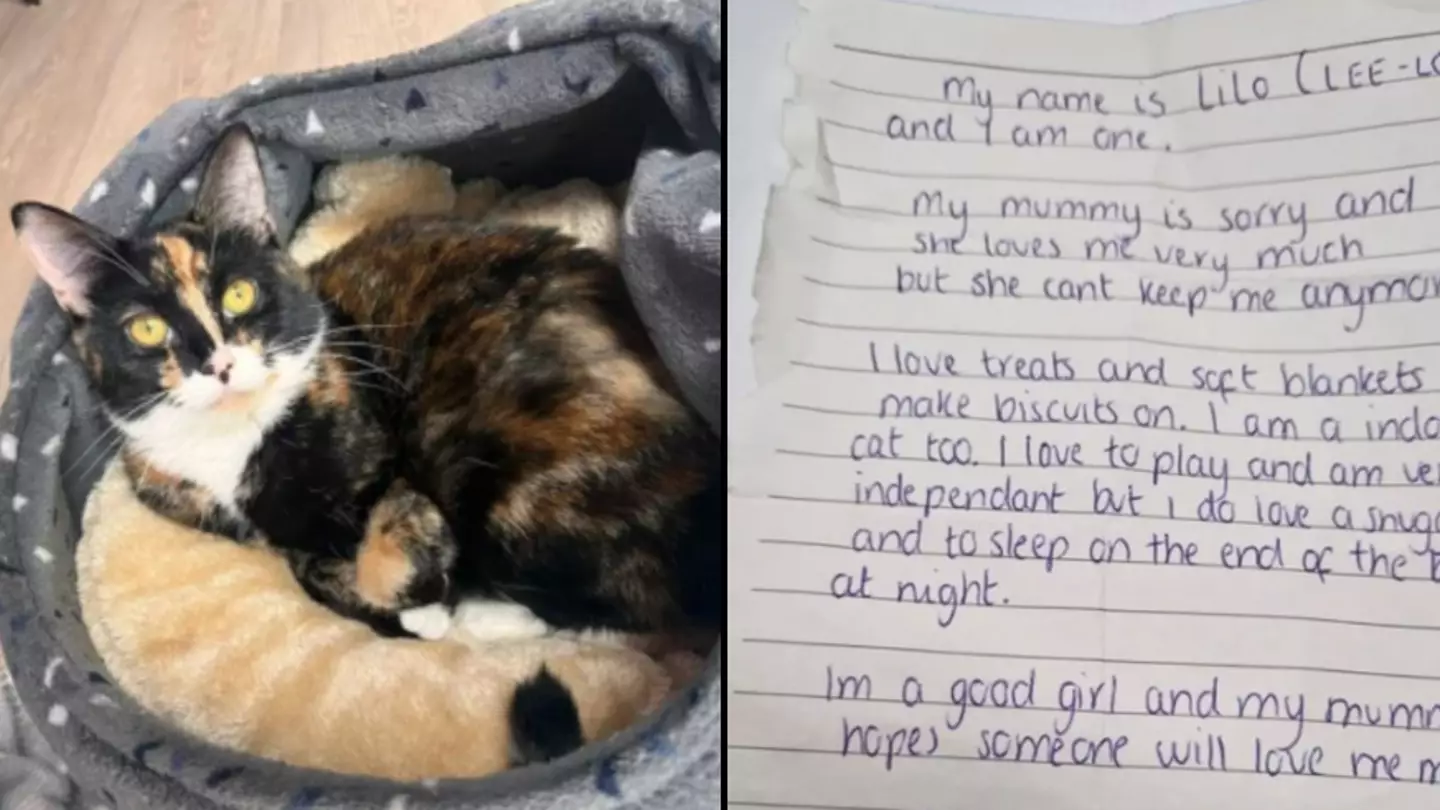 My name is Lilo (LEE-LO
and I am one.
My mummy is sorry and
she loves me very much
but she cant keep me anymor
I love treats and soft blankets
make biscuits on. I am a indo
cat too. I love to play and am ve
independant but I do love a snugg
and to sleep on the end of the b
at night.
Im a good girl and my mumm
hopes someone will love me m